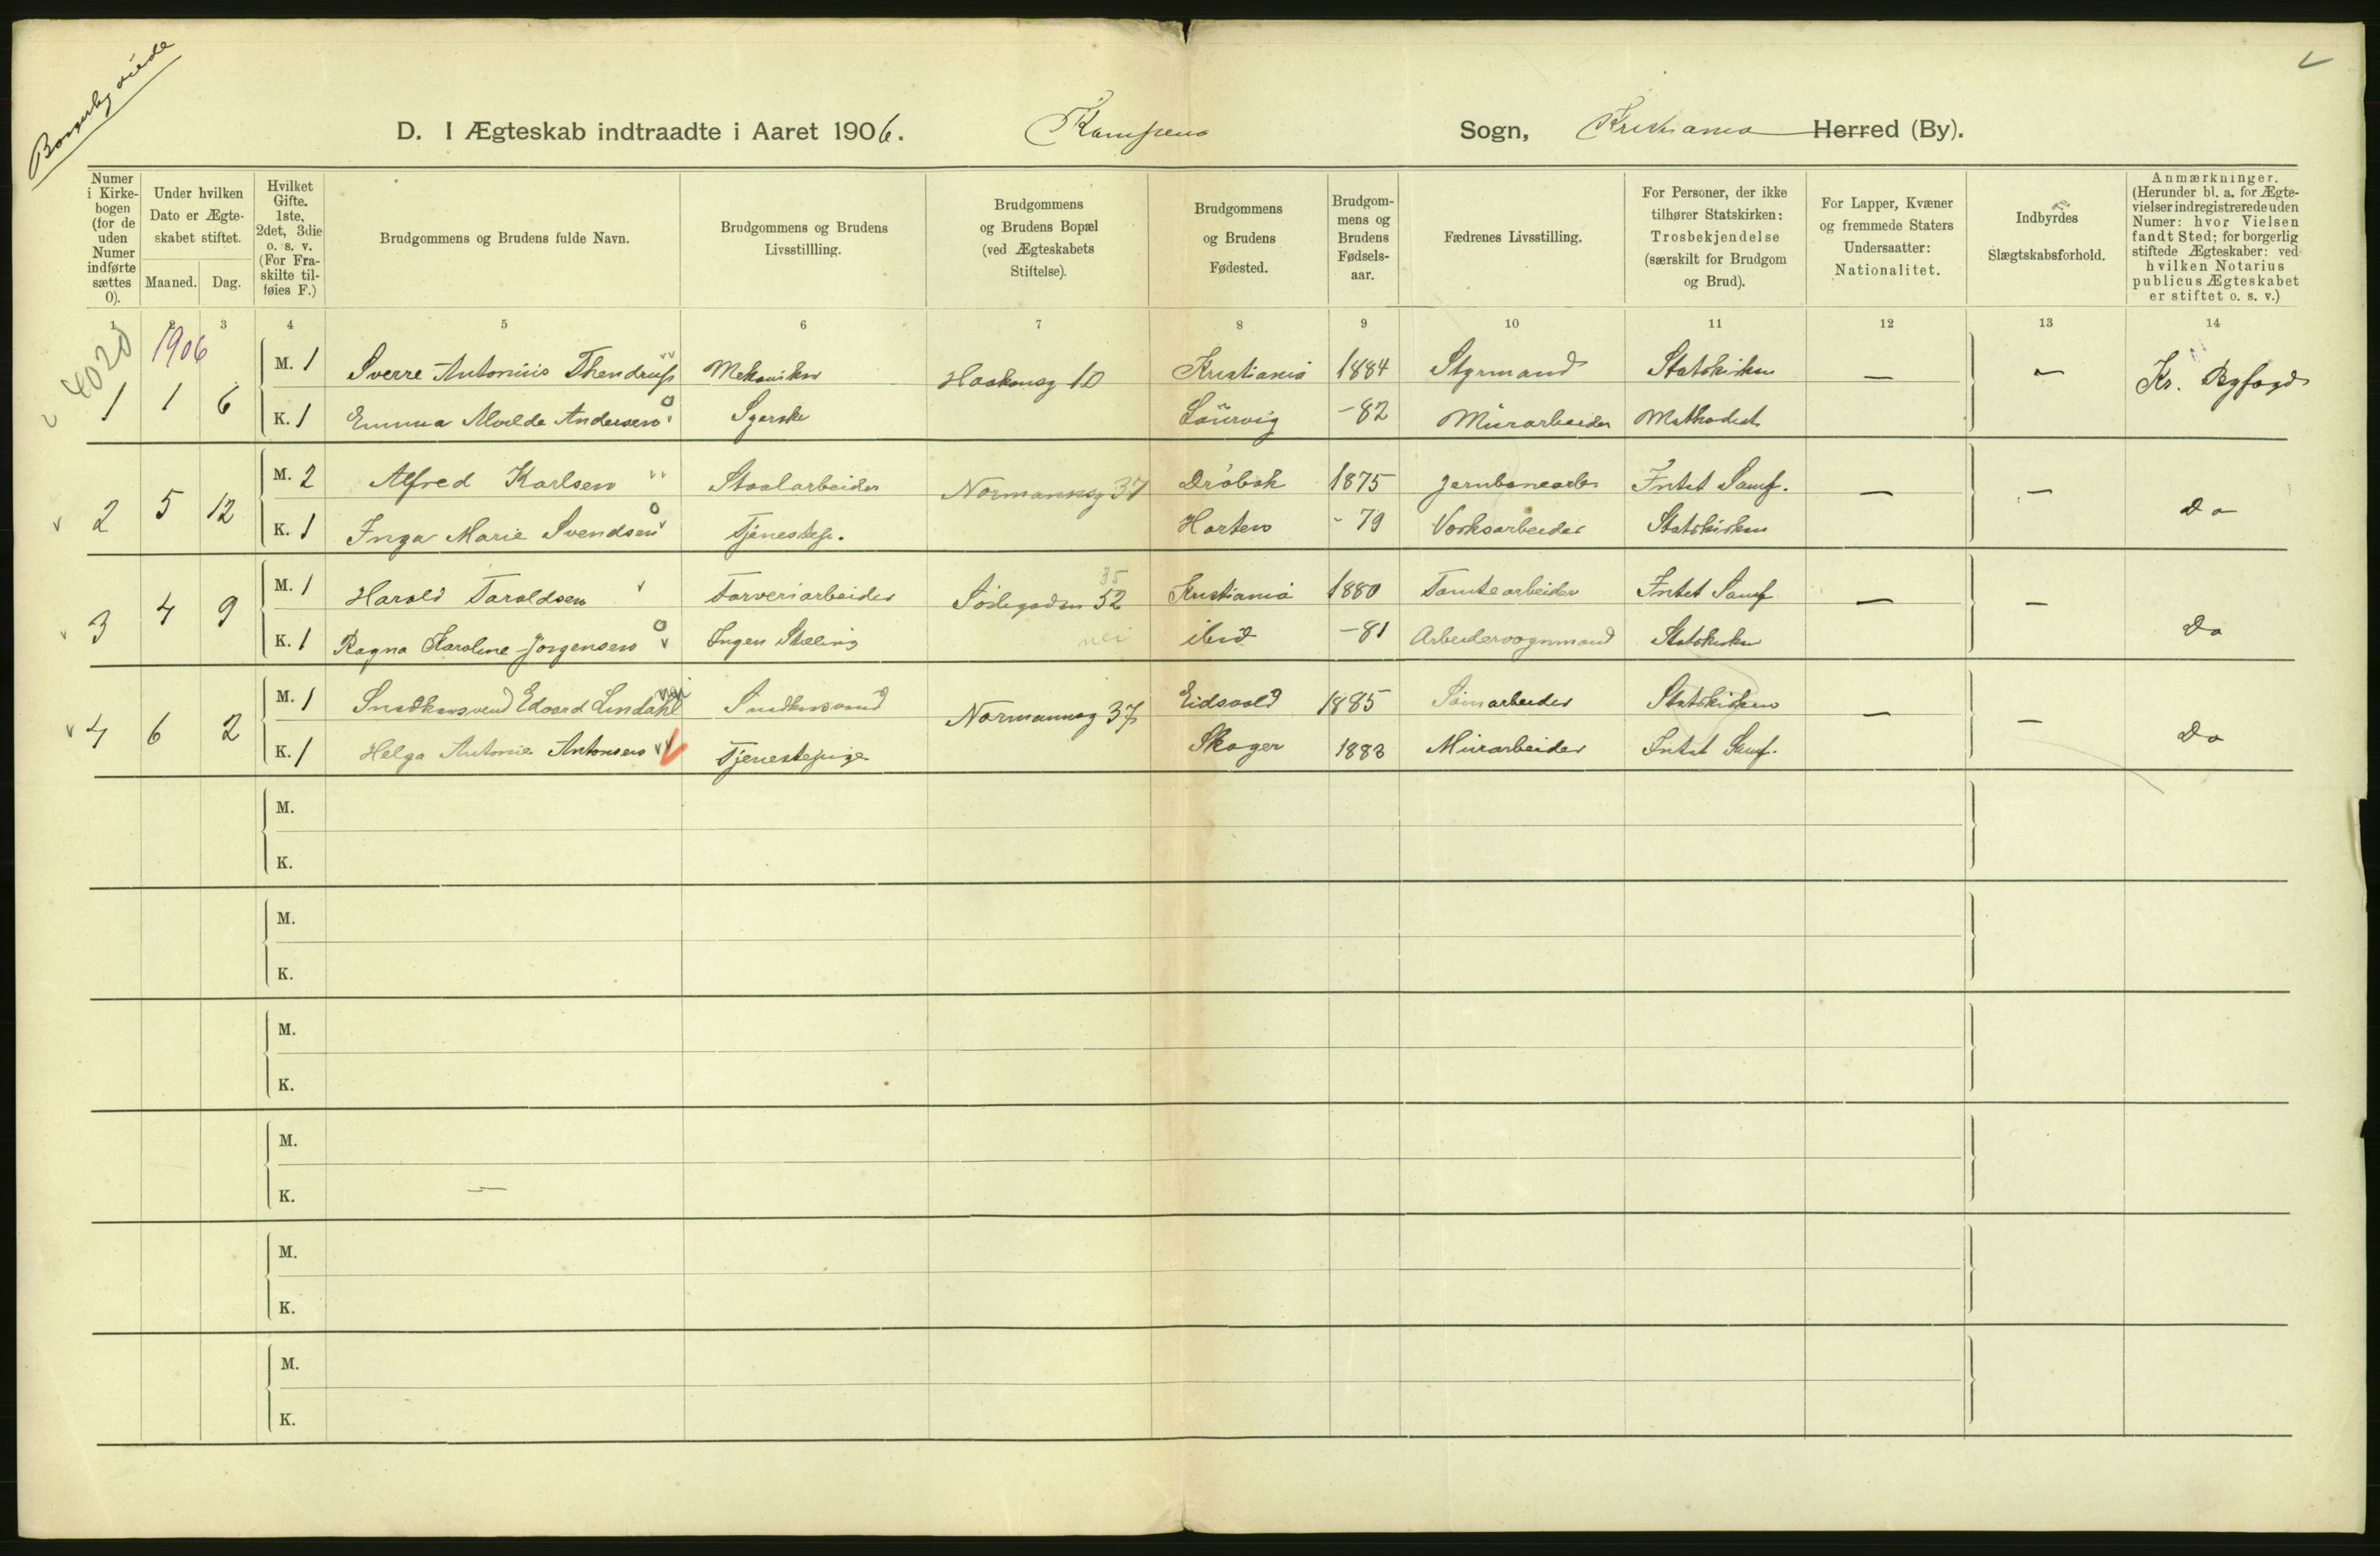 Borgerlig viede
D. I Ægteskab indtraadte i Aaret 1906. Kampens Sogn, Kristiania Herred (By).
Numer i Kirkebogen (for de uden Numer indførte sættes 0).
Under hvilken Dato er Ægteskabet stiftet.
Maaned. Dag.
Hvilket Gifte. 1ste, 2det, 3die o. s. v. (For Fraskilte tilføies F.)
Brudgommens og Brudens fulde Navn.
Brudgommens og Brudens Livsstillling.
Brudgommens og Brudens Bopæl (ved Ægteskabets Stiftelse).
Brudgommens og Brudens Fødested.
Brudgommens og Brudens Fødselsaar.
Fædrenes Livsstilling.
For Personer, der ikke tilhører Statskirken: Trosbekjendelse (særskilt for Brudgom og Brud).
For Lapper, Kvæner og fremmede Staters Undersaatter: Nationalitet.
Indbyrdes Slægtskabsforhold.
Anmærkninger. (Herunder bl. a. for Ægtevielser indregistrerede uden Numer: hvor Vielsen fandt Sted; for borgerlig stiftede Ægteskaber: ved hvilken Notarius publicus Ægteskabet er stiftet o. s. v.)
1 2 3 4 5 6 7 8 9 10 11 12 13 14
4020 1906
1 1 6 M. 1 Sverre Antonius Thendrup Mekaniker Haakonsg 10 Kristiania 1884 Styrmand Statskirken — — Kr. Byfogd
K. 1 Emma Alvilde Andersen Syerske Laurvig -82 Murarbeider Methodist
2 5 12 M. 2 Alfred Karlsen Staalarbeider Normannsg 37 Drøbak 1875 Jernbanearb Intet Samf. — — Do
K. 1 Inga Marie Svendsen Tjenestep. Horten - 79 Værksarbeider Statskirken
3 4 9 M. 1 Harald Taraldsen Farveriarbeider 35 52 Kristiania 1880 Tomtearbeider Intet Samf — — Do
K. 1 Ragna Karoline Jørgensen Ingen Stilling nei ibid -81 Arbeidervognmand Statskirken
4 6 2 M. 1 Snedkersvend Edvard Lindahl Snedkersvend Normannsg 37 Eidsvold 1885 Statskirken — — Do
K. 1 Helga Antonie Antonsen Tjenestepige Skoger 1883 Murarbeider Intet Samf.
M.
K.
M.
K.
M.
K.
M.
K. —
M.
K.
M.
K.